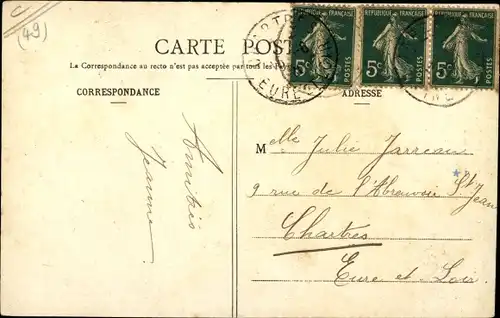 (49)
CARTE POSTALE
La Correspondance au recto n'est pas acceptée par tous les
CORRESPONDANCE
ADRESSE
REPUBLIQUE FRANÇAISE
5c POSTES
REPUBLIQUE FRANÇAISE
5c POSTES
REPUBLIQUE FRANÇAISE
5c POSTES
Amitiés
Jeanne
Melle Julie Jarreau
9 rue de l'Abreuvoir St Jean
Chartres
Eure et Loir